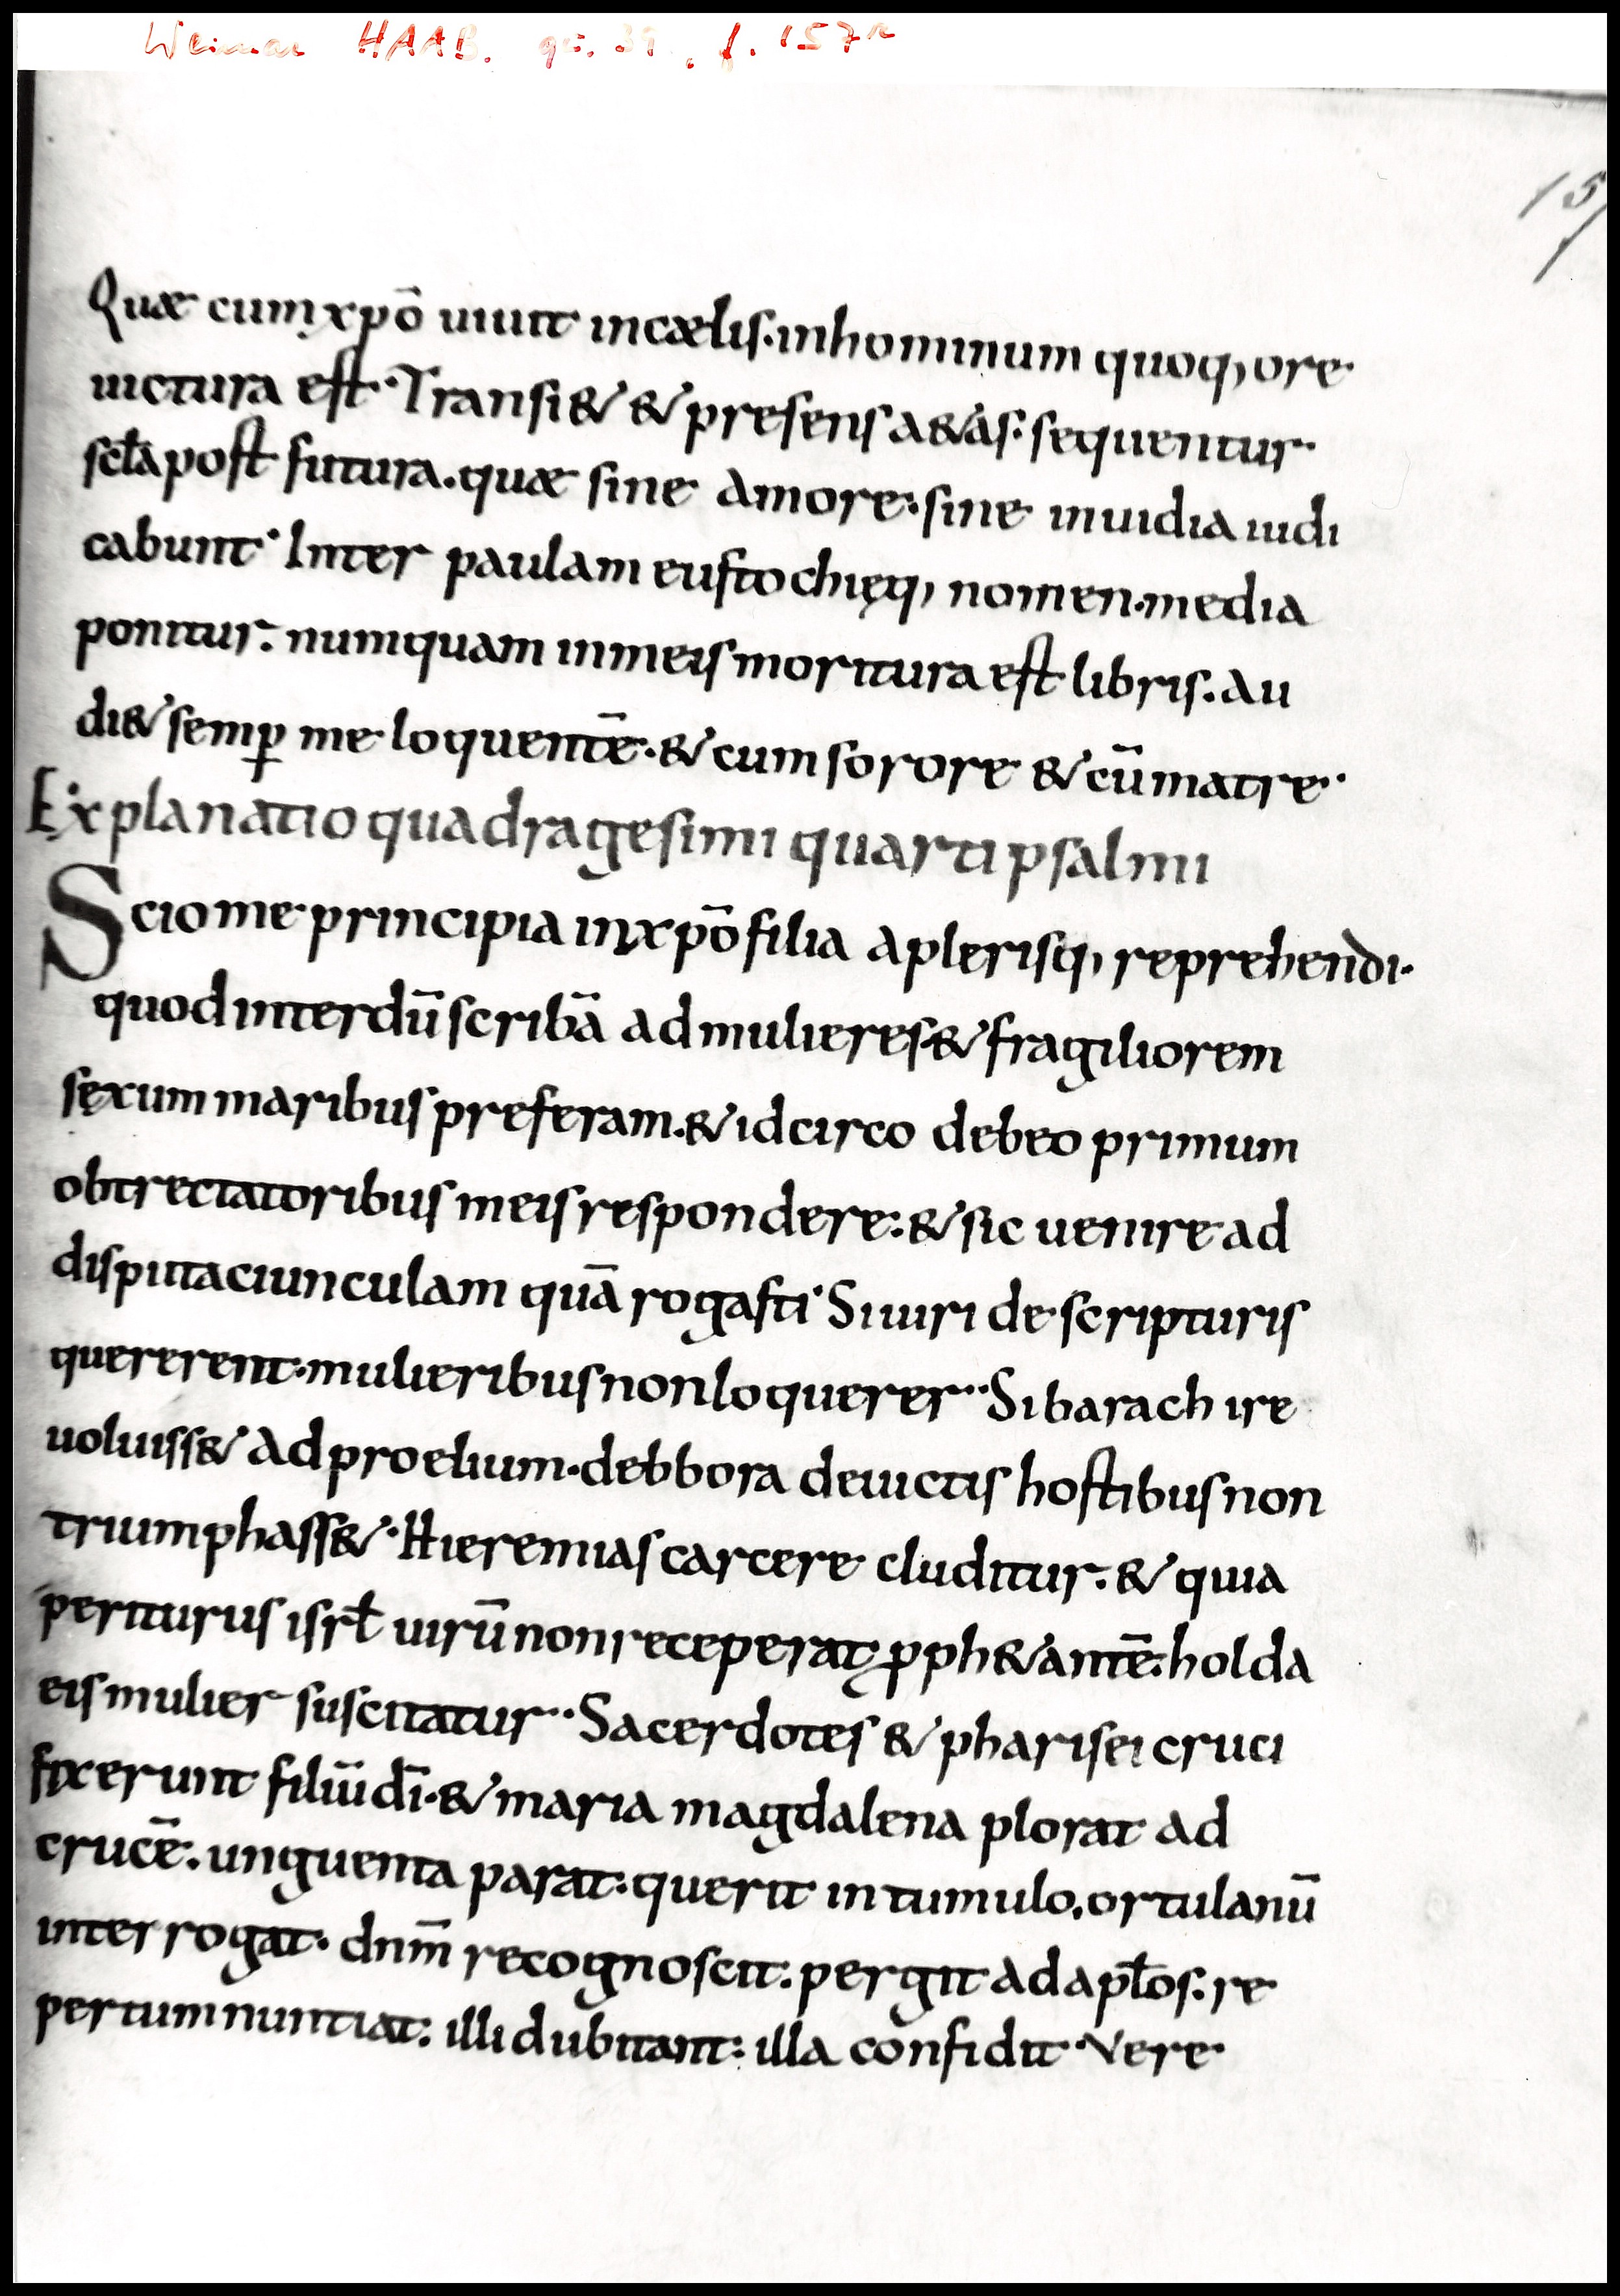 Weimar HAAB. qu. 39, f. 157r
157
Quæ cum xpō uiuit in cælis· in hominum quoq, ore
uictura est· Transi& & presens a&as· sequentur
scła post futura· quæ sine amore· sine inuidia iudi
cabunt· Inter paulam eustochięq, nomen· media
ponitur· numquam in meis moritura est libris· Au
di& semꝑ me loquentē· & cum sorore & cū matre·
Explanatio quadragesimi quarti psalmi
Scio me principia in xpō filia a plerisq, reprehendi·
quod interdū scribā ad mulieres· & fragiliorem
sęxum maribus preferam· & idcirco debeo primum
obtrectatoribus meis respondere· & sic uenire ad
disputaciunculam quā rogasti· Si uiri de scripturis
quererent· mulieribus non loquerer· Si barach ire
uoluiss& ad proelium· debbora deuictis hostibus non
triumphass&· Hieremias carcere cluditur· & quia
periturus isrł uirū non receperat ꝓph&antē· holda
eis mulier suscitatur· Sacerdotes & pharisei cruci
fixerunt filiū dī· & maria magdalena plorat ad
crucē· unguenta parat· querit in tumulo, ortulanū
interrogat· dnm̄ recognoscit· pergit ad apłos· re
pertum nuntiat· illi dubitant· illa confidit· Vere